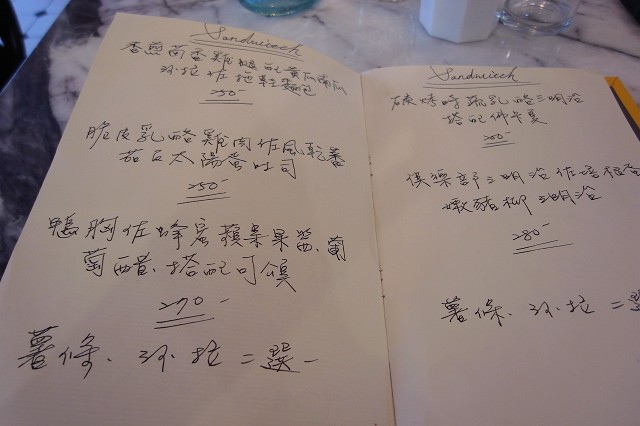 Sandwiech
香煎茴香雞腿配黃瓜南瓜
沙拉佐拖鞋麵包
250-
脆皮乳酪雞肉佐風乾蕃
茄石太陽蛋吐司
250-
鴨胸佐蜂蜜蘋果果醬、葡
萄醋、搭配可頌
270-
薯條、沙拉二選一
Sandwiech
碳烤時蔬乳酪三明治
搭配佛卡夏
200-
俱樂部三明治佐培根蛋
嫩豬柳三明治
280-
薯條、沙拉二選